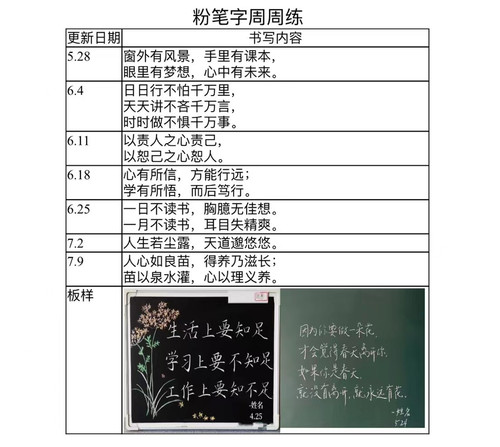 粉笔字周周练
更新日期 书写内容
5.28 窗外有风景，手里有课本，
眼里有梦想，心中有未来。
6.4 日日行不怕千万里，
天天讲不吝千万言，
时时做不惧千万事。
6.11 以责人之心责己，
以恕己之心恕人。
6.18 心有所信，方能行远；
学有所悟，而后笃行。
6.25 一日不读书，胸臆无佳想。
一月不读书，耳目失精爽。
7.2 人生若尘露，天道邈悠悠。
7.9 人心如良苗，得养乃滋长；
苗以泉水灌，心以理义养。
板样
生活上要知足
学习上要不知足
工作上要知不足
-姓名
4.25
因为你要做一朵花，
才会觉得春天离开你.
如果你是春天，
就没有离开，就永远有花.
-姓名
5.24